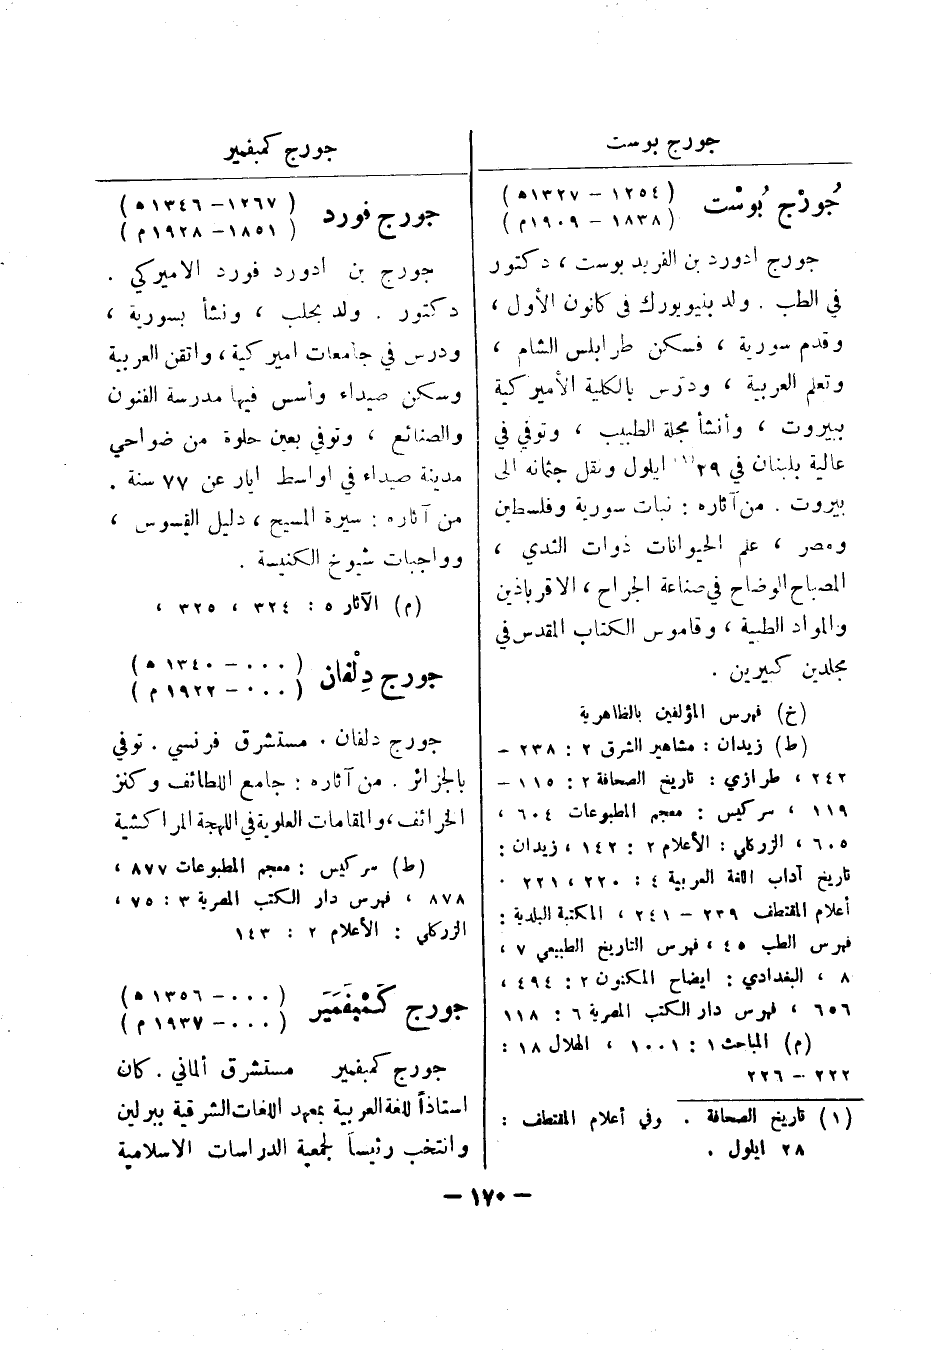 جورج بوست
جُورْج بُوسْت
(١٢٥٤ – ١٣٢٧ ه)
(١٨٣٨ – ١٩٠٩ م)
جورج ادورد بن الفريد بوست ، دكتور
في الطب . ولد بنيويورك في كانون الأول ،
وقدم سورية ، فسكن طرابلس الشام ،
وتعلم العربية ، ودرّس بالكلية الأميركية
ببيروت ، وأنشأ مجلة الطبيب ، وتوفي في
عالية بلبنان في ٢٩ (١) ايلول ونقل جثمانه الى
بيروت . من آثاره : نبات سورية وفلسطين
ومصر ، علم الحيوانات ذوات الثدي ،
المصباح الوضاح في صناعة الجراح ، الاقرباذين
والمواد الطبية ، وقاموس الكتاب المقدس في
مجلدين كبيرين .
(خ) فهرس المؤلفين بالظاهرية
(ط) زيدان : مشاهير الشرق ٢ : ٢٣٨ –
٢٤٢ ، طرازي : تاريخ الصحافة ٢ : ١١٥ –
١١٩ ، سركيس : معجم المطبوعات ٦٠٤ ،
٦٠٥ ، الزركلي : الأعلام ٢ : ١٤٢ ، زيدان :
تاريخ آداب اللغة العربية ٤ : ٢٢٠ ، ٢٢١ .
أعلام المقتطف ٢٣٩ – ٢٤١ ، المكتبة البلدية :
فهرس الطب ٤٥ ، فهرس التاريخ الطبيعي ٧ ،
٨ ، البغدادي : ايضاح المكنون ٢ : ٤٩٤ ،
٦٥٦ ، فهرس دار الكتب المصرية ٦ : ١١٨
(م) المباحث ١ : ١٠٠١ ، الهلال ١٨ :
٢٢٢ – ٢٢٦
(١) تاريخ الصحافة . وفي أعلام المقتطف :
٢٨ ايلول .
جورج كمبفمير
جورج فورد
(١٢٦٧ – ١٣٤٦ ه)
(١٨٥١ – ١٩٢٨ م)
جورج بن ادورد فورد الاميركي .
دكتور . ولد بحلب ، ونشأ بسورية ،
ودرس في جامعات اميركية ، واتقن العربية
وسكن صيداء وأسس فيها مدرسة الفنون
والصنائع ، وتوفي بعين حلوة من ضواحي
مدينة صيداء في اواسط ايار عن ٧٧ سنة .
من آثاره : سيرة المسيح ، دليل القسوس ،
وواجبات شيوخ الكنيسة .
(م) الآثار ٥ : ٣٢٤ ، ٣٢٥ ،
جورج دِلْفان
(٠٠٠ – ١٣٤٠ ه)
(٠٠٠ – ١٩٢٢ م)
جورج دلفان . مستشرق فرنسي . توفي
بالجزائر . من آثاره : جامع اللطائف وكنز
الخرائف ، والمقامات العلوية في اللهجة المراكشية
(ط) سركيس : معجم المطبوعات ٨٧٧ ،
٨٧٨ ، فهرس دار الكتب المصرية ٣ : ٧٥ ،
الزركلي : الأعلام ٢ : ١٤٣
جورج كَمْبفَمَير
(٠٠٠ – ١٣٥٦ ه)
(٠٠٠ – ١٩٣٧ م)
جورج كمبفمير مستشرق ألماني . كان
استاذاً للغة العربية بمعهد اللغات الشرقية ببرلين
وانتخب رئيساً لجمعية الدراسات الاسلامية
– ١٧٠ –